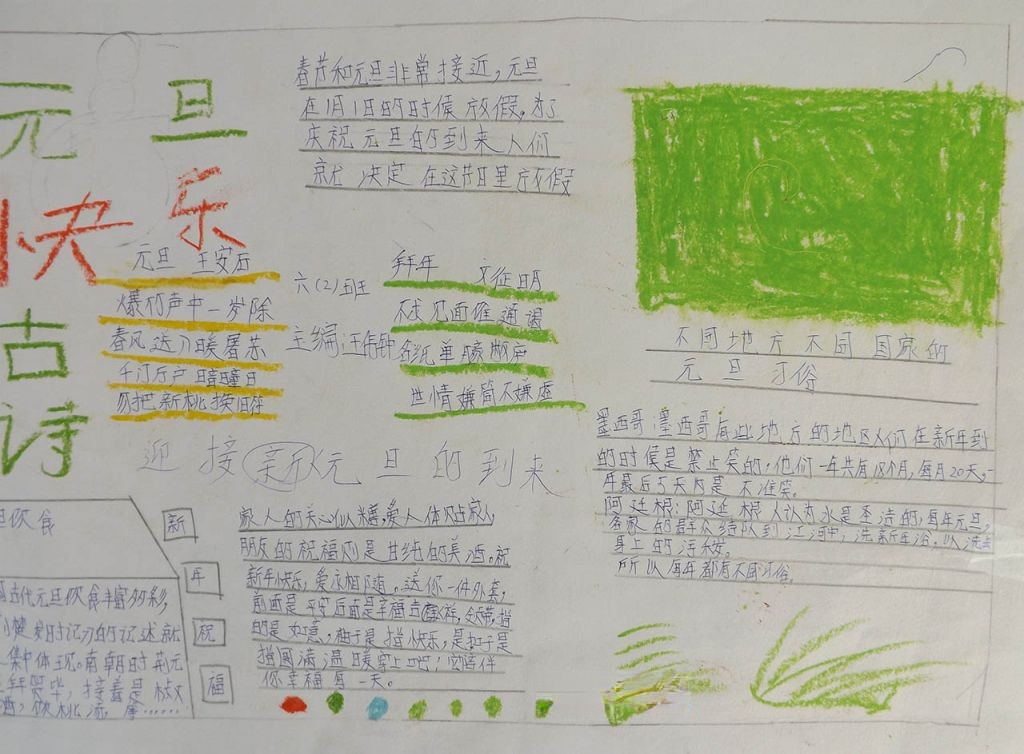 元旦
快乐
古
诗
春节和元旦非常接近，元旦
在1月1日的时候放假，为了
庆祝元旦的到来人们
就决定在这节日里放假
元旦 王安石
爆竹声中一岁除
春风送
千门万户曈曈日
把新桃换旧符
六(2)班
主编汪
拜年 文征明
不求见面惟通谒
纸
世情嫌简不嫌虚
迎接新(元旦的到来
不同地方不同国家的
元旦习俗
墨西哥:墨西哥有些地方的地区人们在新年到
的时候是禁止笑的，他们一年共有18个月，每月20天，一
年最后5天内是不准笑。
阿廷根:阿廷根人认为水是圣洁的，每年元旦，
各家的群众结队到江河中，洗新年浴，以洗去
身上的污
所以每年都有不同习俗。
饮食
古代元旦饮食丰富多彩，
时记》的记述就
集中体现。南朝时
接着是椒
酒，饮桃汤，
新
年
祝
福
家人的关心似糖，爱人体贴
朋友的祝福则是甘纯的美酒。祝
新年快乐，爱永相随。送你一件外套，
前面是平安后面是幸福吉祥
的是如意，袖子是快乐，
圆满温暖穿上吧!
你幸福每一天。